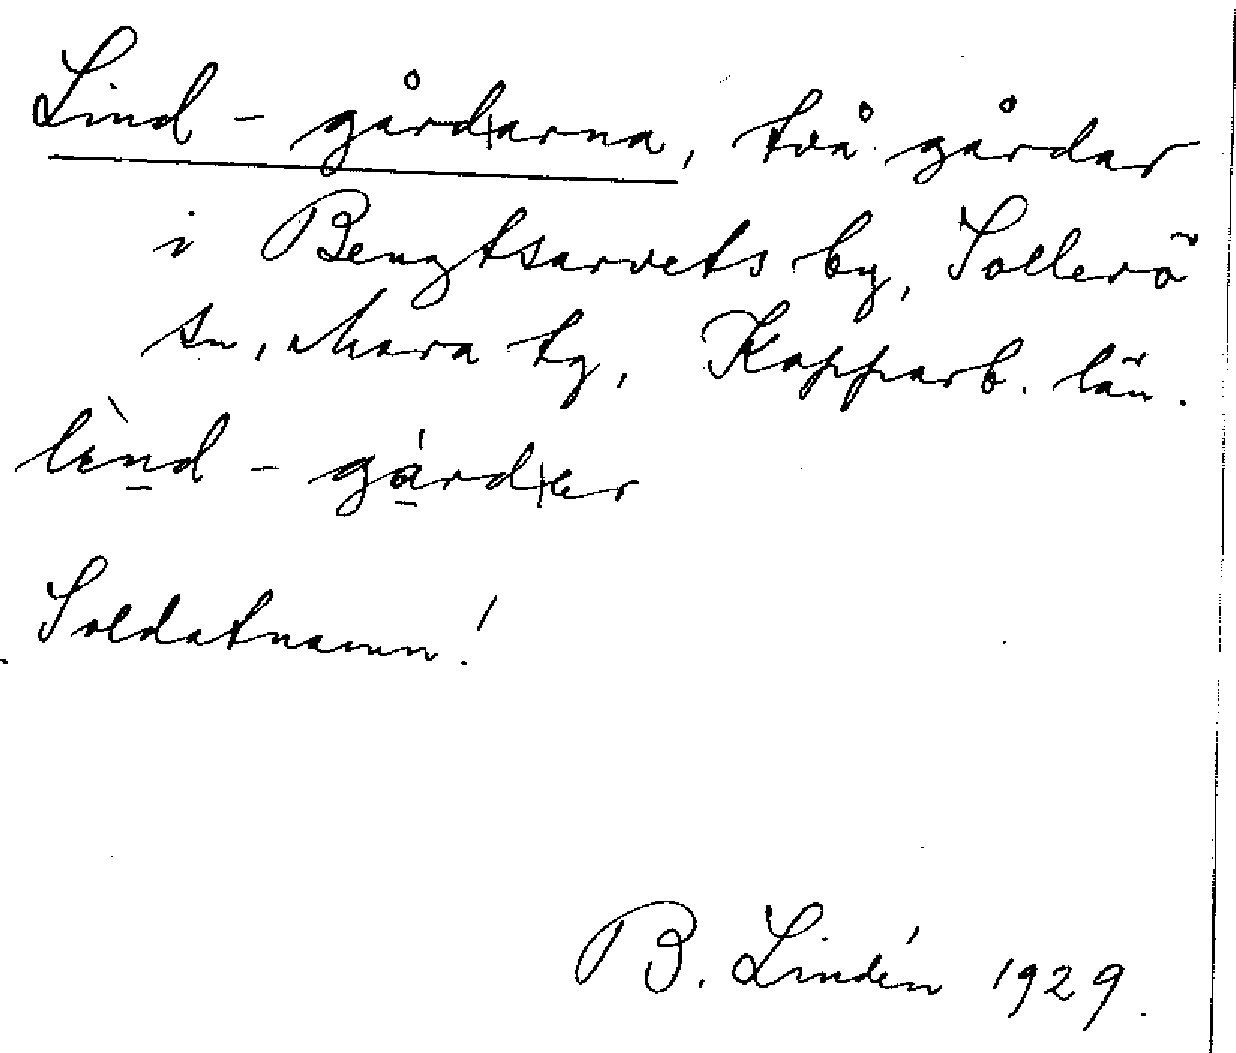 Lind-gård|arna, två gårdar
i Bengtsarvets by, Sollerö
sn, Mara tg, Kopparb. län.
lìnd-gárd|er
Soldatnamn!
B. Lindén 1929.